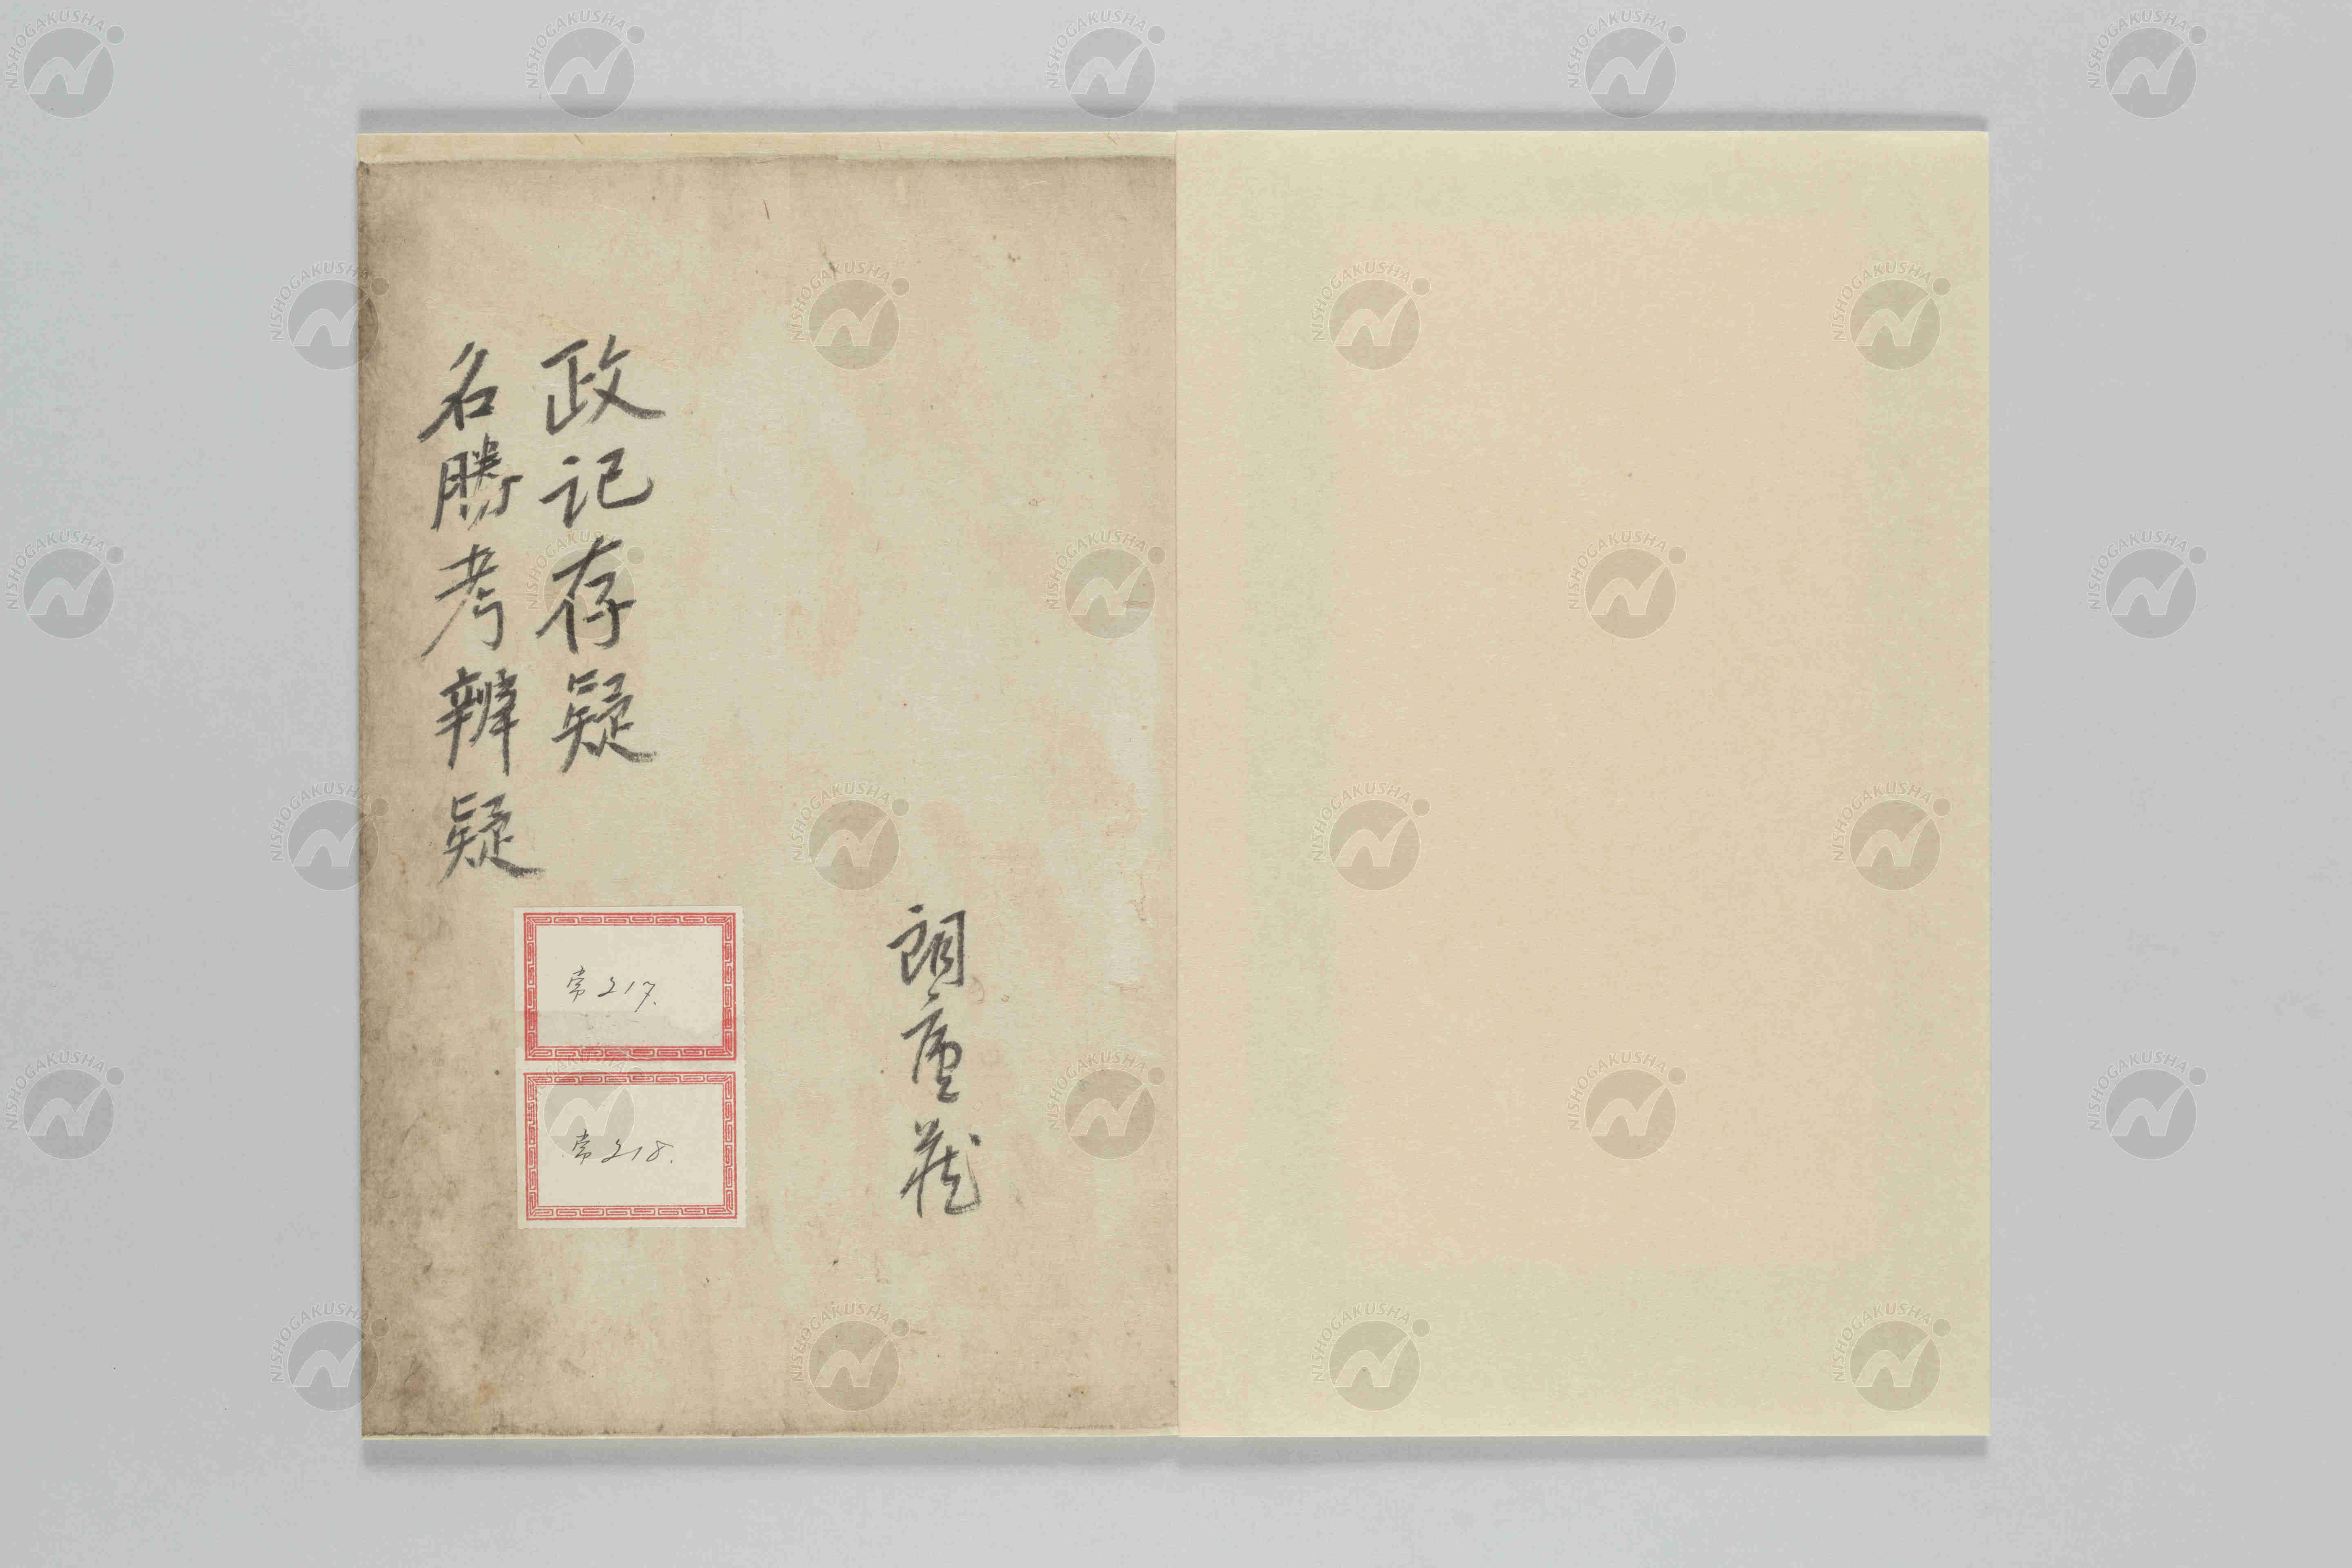 朗廬蔵
政记存疑
名勝考辨疑
常217.
常218.
NISHOGAKUSHA